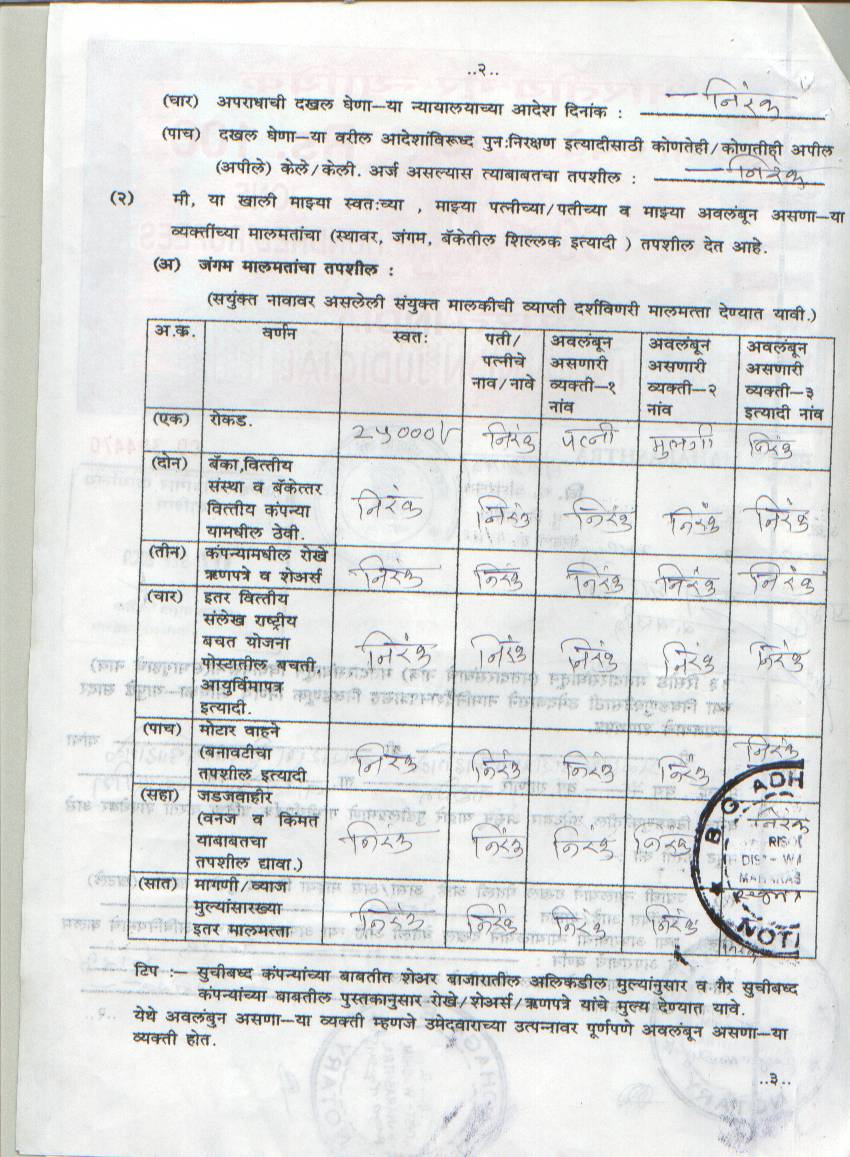 ..२..
(चार) अपराधाची दखल घेणा—या न्यायालयाच्या आदेश दिनांक : निरंक
(पाच) दखल घेणा—या वरील आदेशांविरूध्द पुन:निरक्षण इत्यादीसाठी कोणतेही/कोणतीही अपील
(अपीले) केले/केली. अर्ज असल्यास त्याबाबतचा तपशील : निरंक
(२) मी, या खाली माझ्या स्वत:च्या , माझ्या पत्नीच्या/पतीच्या व माझ्या अवलंबून असणा—या
व्यक्तींच्या मालमतांचा (स्थावर, जंगम, बॅकेतील शिल्लक इत्यादी ) तपशील देत आहे.
(अ) जंगम मालमतांचा तपशील :
(सयुंक्त नावावर असलेली संयुक्त मालकीची व्याप्ती दर्शविणरी मालमत्ता देण्यात यावी.)
अ.क. वर्णन स्वत: पती/ अवलंबून अवलंबून अवलंबून
पत्नीचे असणारी असणारी असणारी
नाव/नावे व्यक्ती—१ व्यक्ती—२ व्यक्ती—३
नांव नांव इत्यादी नांव
(एक) रोकड. २५०००/- निरंक पत्नी मुलगी निरंक
(दोन) बॅका,वित्तीय
संस्था व बॅकेत्तर
वित्तीय कंपन्या निरंक निरंक निरंक निरंक निरंक
यामधील ठेवी.
(तीन) कंपन्यामधील रोखे
ऋणपत्रे व शेअर्स निरंक निरंक निरंक निरंक निरंक
(चार) इतर वित्तीय
संलेख राष्ट्रीय
बचत योजना निरंक निरंक निरंक निरंक निरंक
पोस्टातील बचती,
आयुर्विमापत्र
इत्यादी.
(पाच) मोटार वाहने निरंक
(बनावटीचा निरंक निरंक निरंक निरंक
तपशील इत्यादी
(सहा) जडजवाहीर
(वनज व किंमत निरंक निरंक निरंक निरंक निरंक
याबाबतचा
तपशील द्यावा.)
(सात) मागणी, व्याज
मुल्यांसारख्या निरंक निरंक निरंक निरंक
इतर मालमत्ता निरंक
B. G. ADH
DIST - WA
NOTA
टिप :— सुचीबध्द कंपन्यांच्या बाबतीत शेअर बाजारातील अलिकडील मुल्यांनुसार व गैर सुचीबध्द
कंपन्यांच्या बाबतील पुस्तकानुसार रोखे/शेअर्स/ऋणपत्रे यांचे मुल्य देण्यात यावे.
येथे अवलंबुन असणा—या व्यक्ती म्हणजे उमेदवाराच्या उत्पन्नावर पूर्णपणे अवलंबून असणा—या
व्यक्ती होत.
..३..